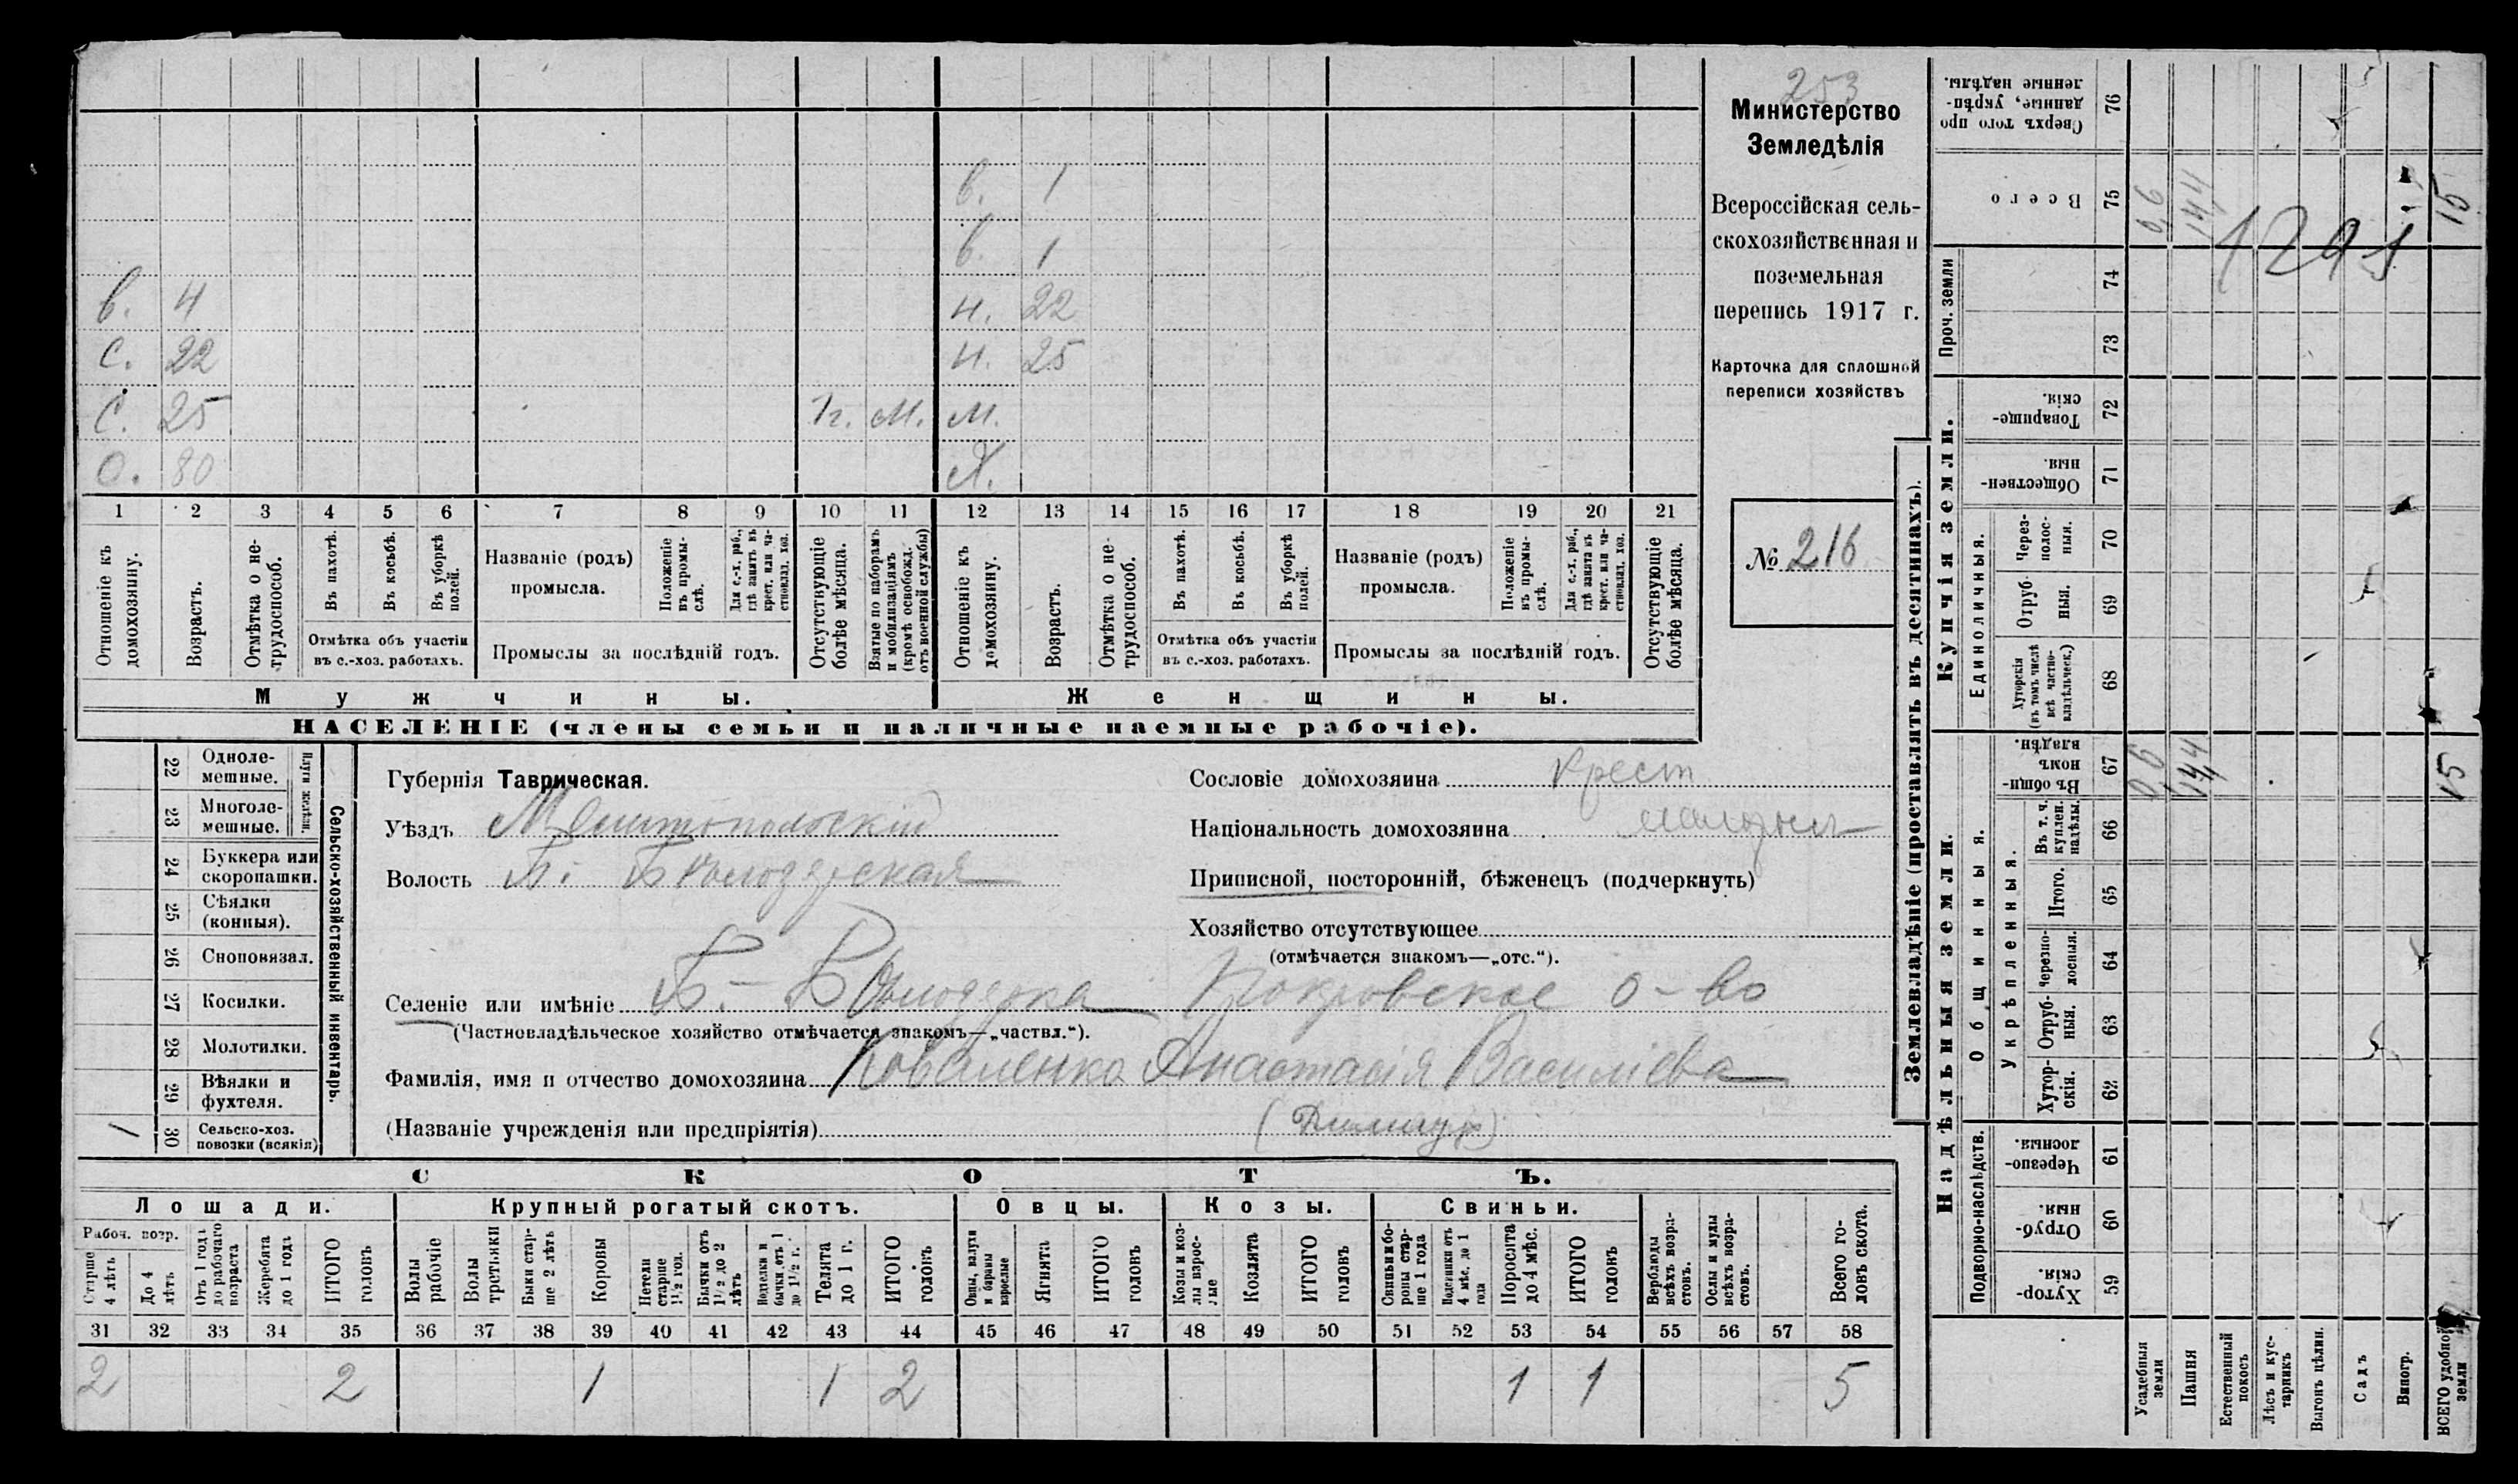 253
Министерство
Земледѣлія
Всероссійская сель-
скохозяйственная и
поземельная
перепись 1917 г.
Карточка для сплошной
переписи хозяйствъ
№ 216
в. 1
в. 1
в. 4 н. 22
с. 22 н. 25
с. 25 м. м.
о. 80
1 2 3 4 5 6 7 8 9 10 11 12 13 14 15 16 17 18 19 20 21
Отношеніе къ домохозяину.
Возрастъ.
Отмѣтка о не-трудоспособ.
Въ пахотѣ.
Въ косьбѣ.
Въ уборкѣ полей.
Отмѣтка объ участіи
въ с.-хоз. работахъ.
Названіе (родъ)
промысла.
Положеніе въ промы-слѣ.
Для с.-х. раб., гдѣ занятъ въ крест. или ча-стновлад. хоз.
Промыслы за послѣдній годъ.
Отсутствующіе болѣе мѣсяца.
Взятые по наборамъ и мобилизаціямъ (кромѣ освобожд. отъ военной службы)
Отношеніе къ домохозяину.
Возрастъ.
Отмѣтка о не-трудоспособ.
Въ пахотѣ.
Въ косьбѣ.
Въ уборкѣ полей.
Отмѣтка объ участіи
въ с.-хоз. работахъ.
Названіе (родъ)
промысла.
Положеніе въ промы-слѣ.
Для с.-х. раб., гдѣ занята въ крест. или ча-стновлад. хоз.
Промыслы за послѣдній годъ.
Отсутствующіе болѣе мѣсяца.
Мужчины. Женщины.
НАСЕЛЕНІЕ (члены семьи и наличные наемные рабочіе).
22 Одноле-мешные.
23 Многоле-мешные.
Плуги желѣзн.
24 Буккера или скоропашки.
25 Сѣялки (конныя).
26 Сноповязал.
27 Косилки.
28 Молотилки.
29 Вѣялки и фухтеля.
1 30 Сельско-хоз. повозки (всякія)
Сельско-хозяйственный инвентарь.
Губернія Таврическая.
Уѣздъ Мелитопольскій
Волость Б. Бѣлозерская
Селеніе или имѣніе Б.- Бѣлозерка Покровское о-во
(Частновладѣльческое хозяйство отмѣчается знакомъ—„частвл.“).
Фамилія, имя и отчество домохозяина Коваленко Анастасія Василіева
(Названіе учрежденія или предпріятія)
Сословіе домохозяина крест
Національность домохозяина малорос
Приписной, посторонній, бѣженецъ (подчеркнуть)
Хозяйство отсутствующее
(отмѣчается знакомъ—„отс.“).
СКОТЪ.
Лошади. Крупный рогатый скотъ. Овцы. Козы. Свиньи.
Рабоч. возр.
Старше 4 лѣтъ
До 4 лѣтъ
Отъ 1 года до рабочаго возраста
Жеребята до 1 года
ИТОГО головъ
Волы рабочіе
Волы третьяки
Быки стар-ше 2 лѣтъ
Коровы
Нетели старше 1½ год.
Бычки отъ 1½ до 2 лѣтъ
Нетелки и бычки отъ 1 до 1½ г.
Телята до 1 г.
ИТОГО головъ
Овцы, валухи и бараны взрослые
Ягнята
ИТОГО головъ
Козы и коз-лы взрос-лые
Козлята
ИТОГО головъ
Свиньи и бо-ровы стар-ше 1 года
Подсвинки отъ 4 мѣс. до 1 года
Поросята до 4 мѣс.
ИТОГО головъ
Верблюды всѣхъ возра-стовъ.
Ослы и мулы всѣхъ возра-стовъ.
Всего го-ловъ скота.
31 32 33 34 35 36 37 38 39 40 41 42 43 44 45 46 47 48 49 50 51 52 53 54 55 56 57 58
2 2 1 1 2 1 1 5
Землевладѣніе (проставлять въ десятинахъ).
Надѣльныя земли. Купчія земли. Проч. земли
Подворно-наслѣдств.
Общинныя.
Укрѣпленныя.
Единоличныя.
Хутор-скія. 59
Отруб-ныя. 60
Черезпо-лосныя. 61
Хутор-скія. 62
Отруб-ныя. 63
Черезпо-лосныя. 64
Итого. 65
Въ т. ч. куплен. надѣлы. 66
Въ общин-номъ владѣн. 67
Хуторскія (въ томъ числѣ всѣ частно-владѣльческ.) 68
Отруб-ныя. 69
Через-полос-ныя. 70
Обществен-ныя. 71
Товарище-скія. 72
73
74
Всего 75
Сверхъ того про-данные, укрѣп-ленные надѣлы. 76
Усадебныя земли
Пашня
Естественный покосъ
Лѣсъ и кус-тарникъ
Выгонъ цѣлин.
Садъ
Виногр.
ВСЕГО удобной земли
0,6 14,4 15
0,6 14,4 15